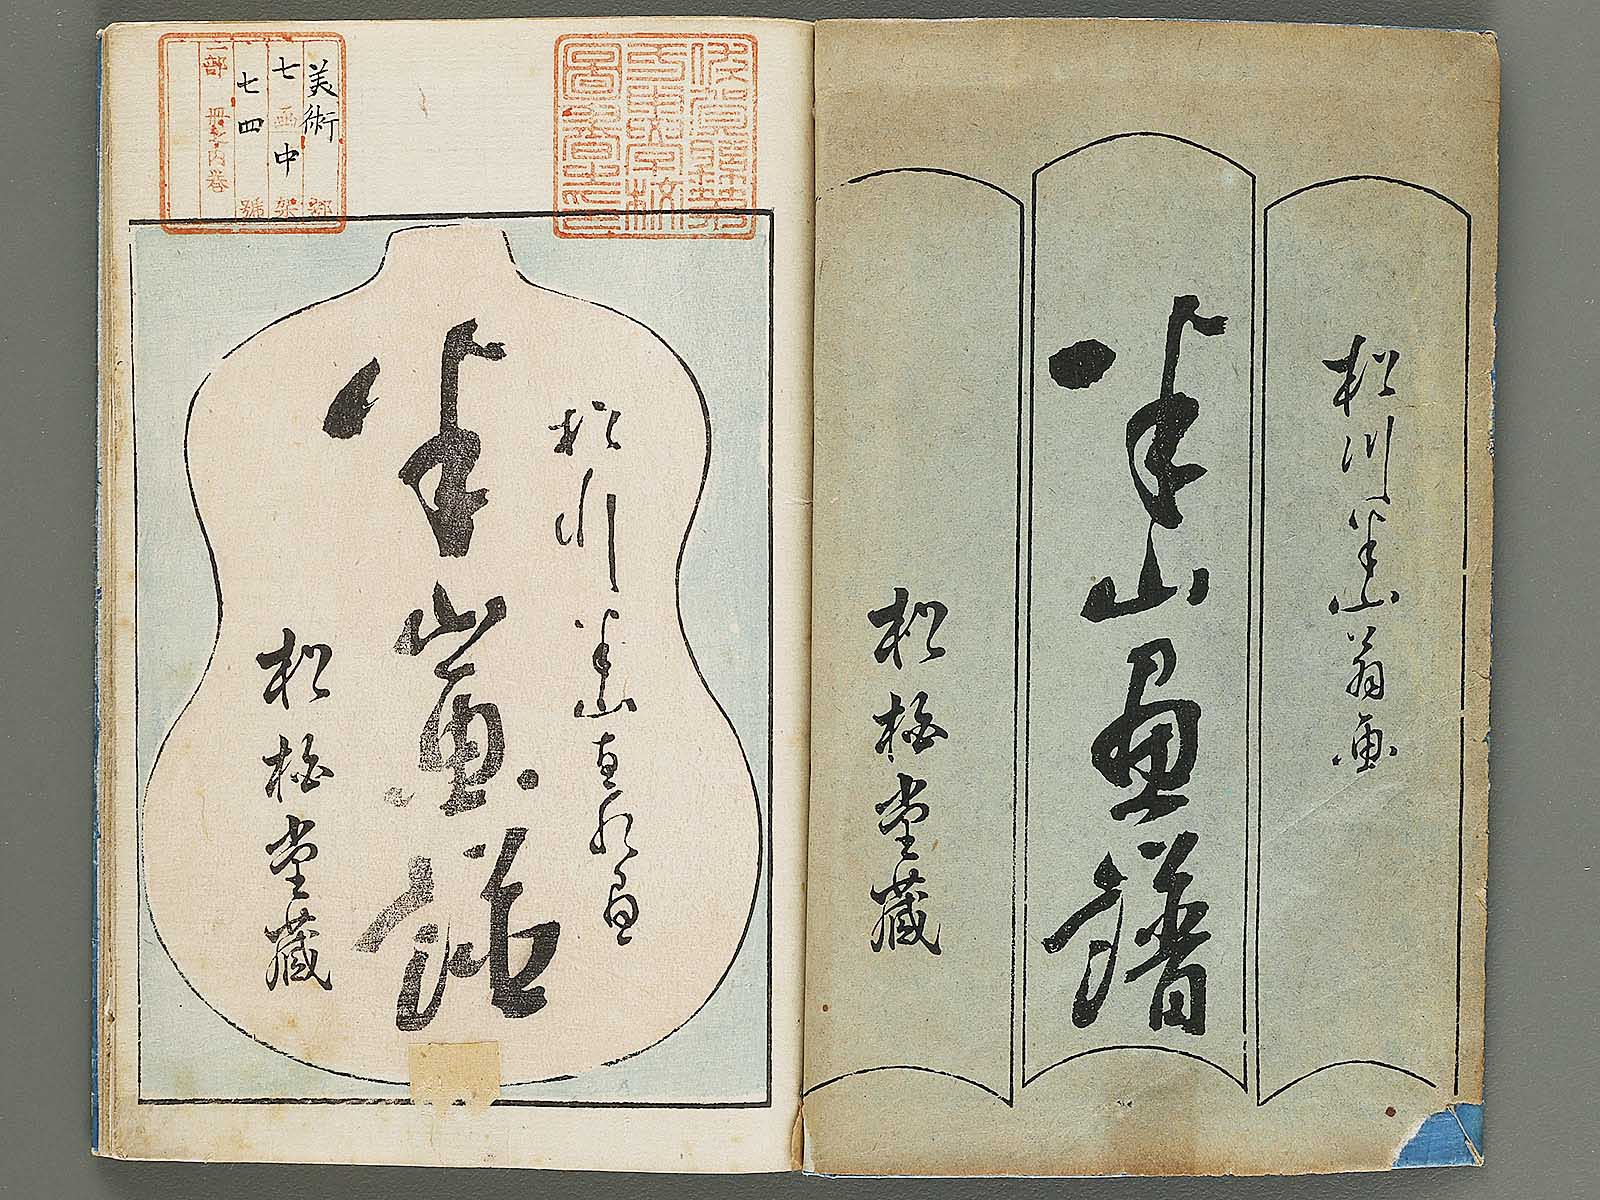 松川半山翁画
半山画譜
松栢堂藏
松川半山直水画
半山画譜
松栢堂藏
美術部
七函中架
七四號
一部 冊ノ内 巻